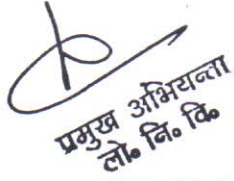 प्रमुख अभियन्ता
लो० नि० वि०